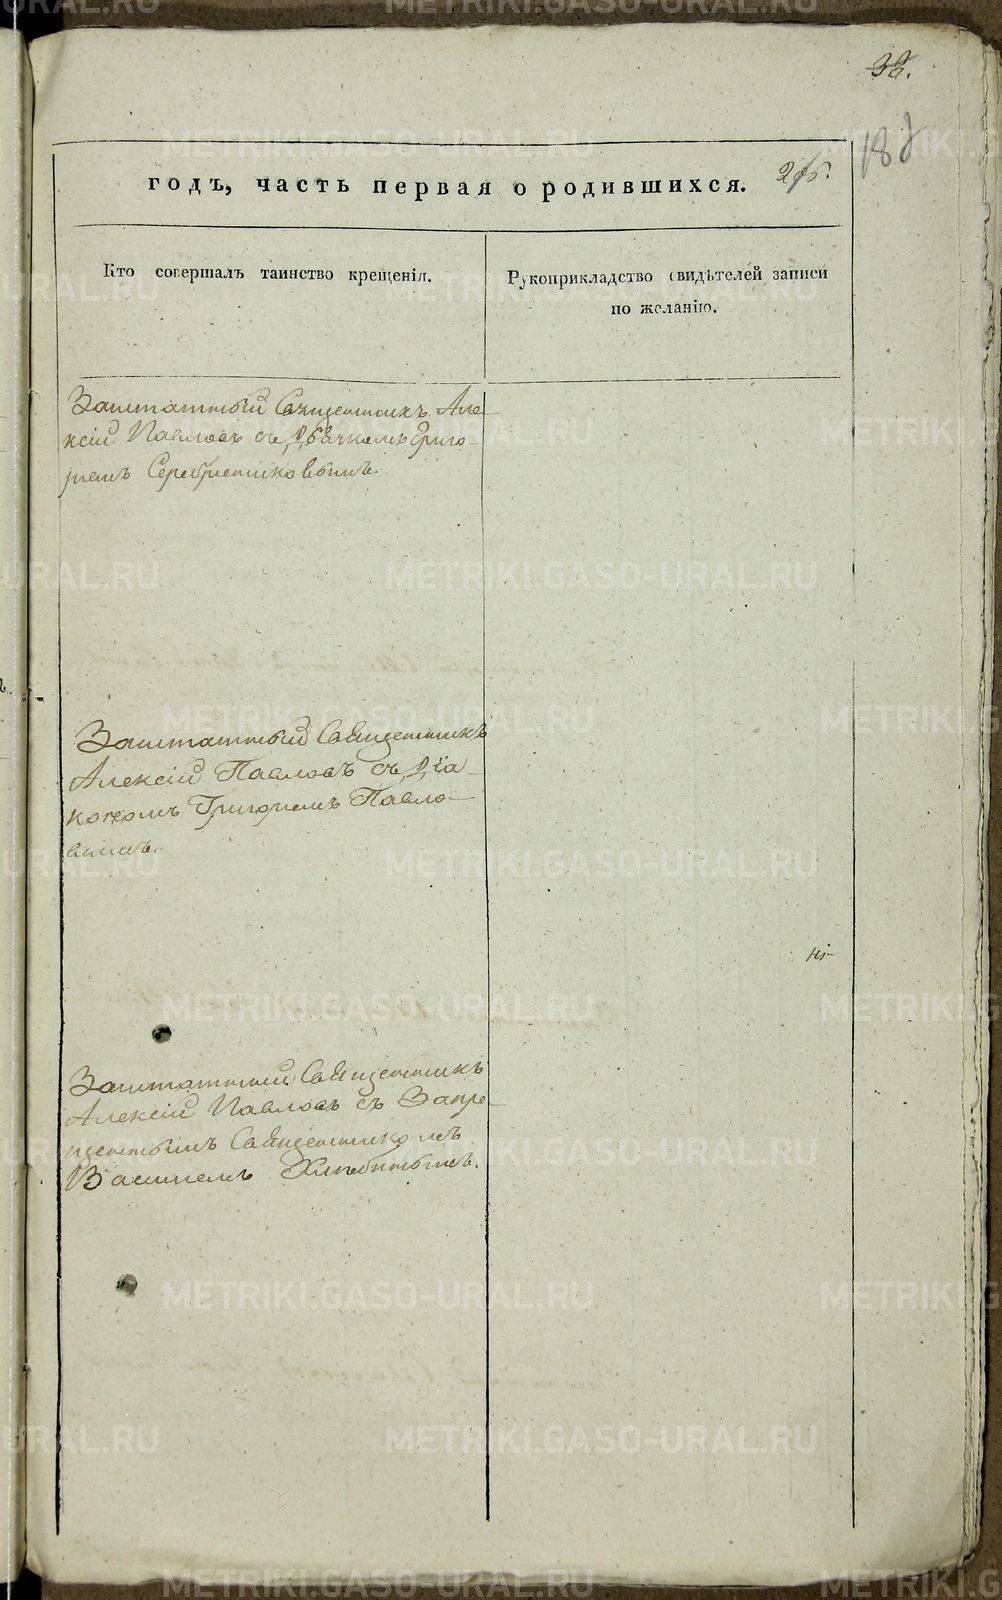 годъ, часть первая о родившихся.
Кто совершалъ таинство крещенія.
Рукоприкладство свидѣтелей записи
по желанію.
Заштатный Священникъ Але-
ксій Павловъ съ Дьячкомъ Григо-
ріемъ Серебренниковымъ.
Заштатный Священникъ
Алексій Павловъ съ Діа-
кономъ Григоріемъ Павло-
вымъ.
Заштатный Священникъ
Алексій Павловъ съ Запре-
щеннымъ Священникомъ
Василіемъ Хлѣбинымъ.
METRIKI.GASO-URAL.RU